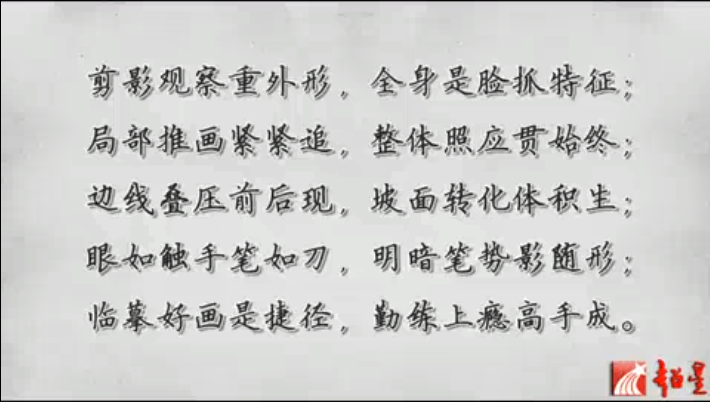 剪影观察重外形，全身是脸抓特征；
局部推画紧紧追，整体照应贯始终；
边线叠压前后现，坡面转化体积生；
眼如触手笔如刀，明暗笔势影随形；
临摹好画是捷径，勤练上瘾高手成。